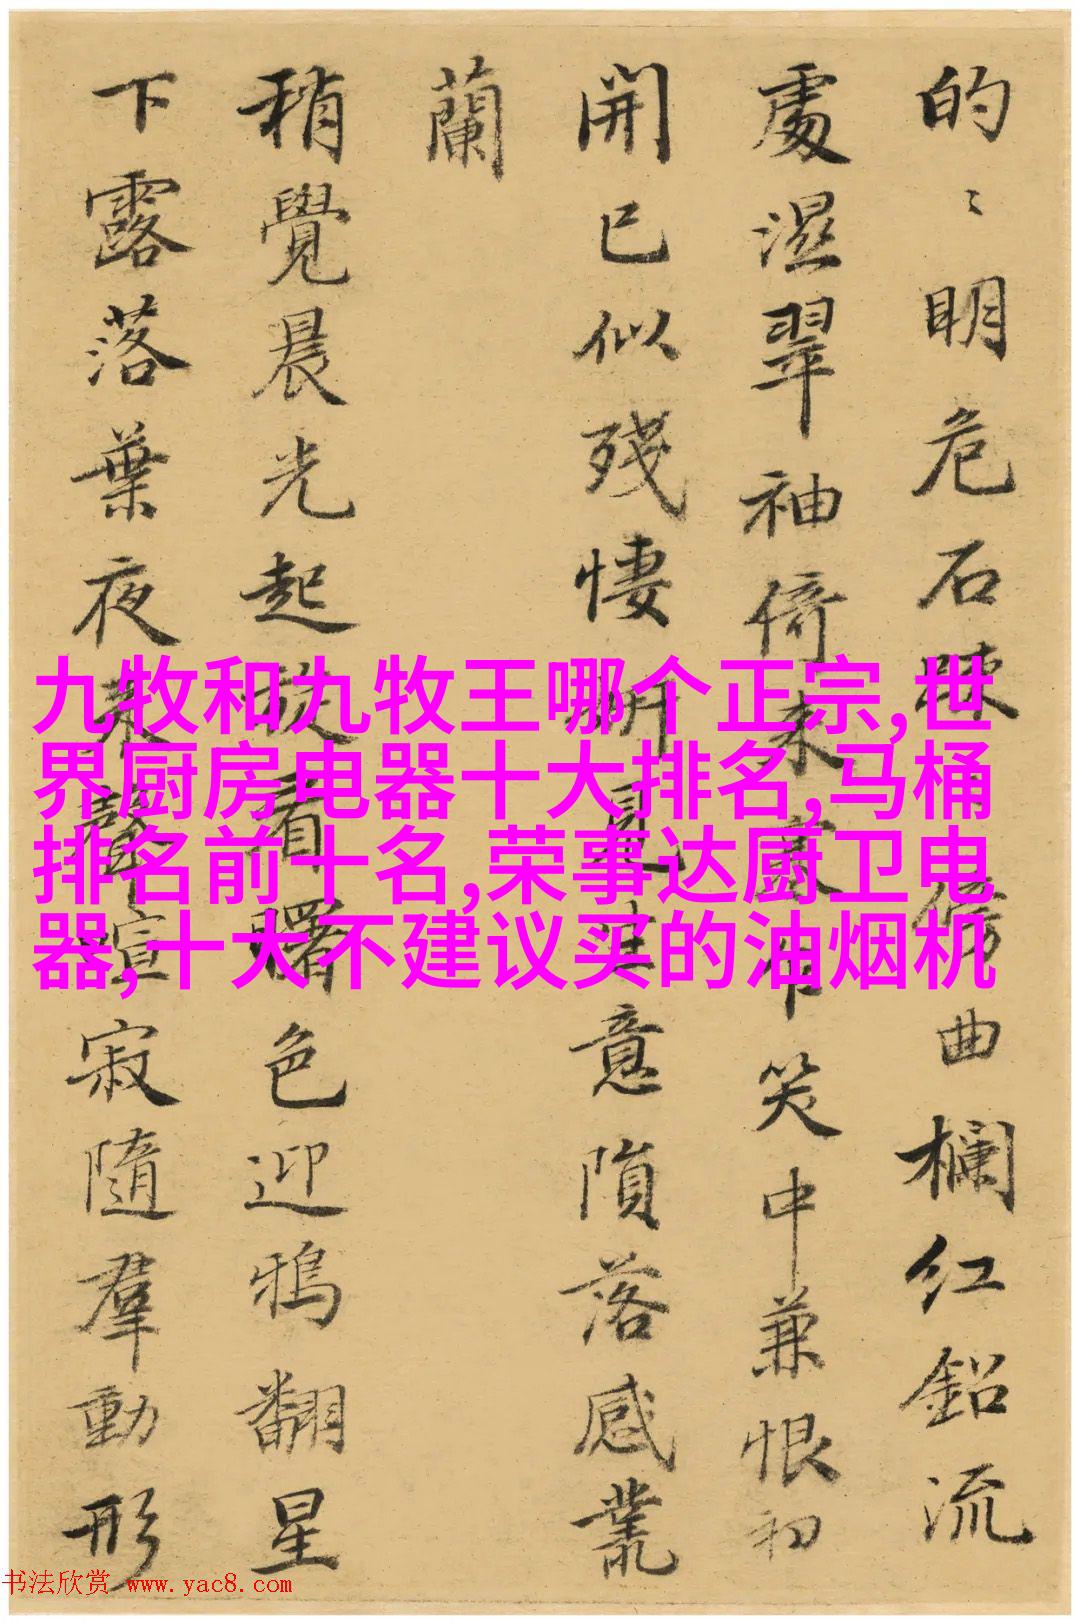 的〻明危石疎 曲欄红鉛流
處濕翠袖倚未 笑中兼恨初
開已似殘悽 意隕落感叢
蘭
稍覺晨光起 看曙色迎鴉翻星
下露落葉夜 聲喧寂隨羣動形
九牧和九牧王哪个正宗,世
界厨房电器十大排名,马桶
排名前十名,荣事达厨卫电
器,十大不建议买的油烟机
书法欣赏 www.yac8.com